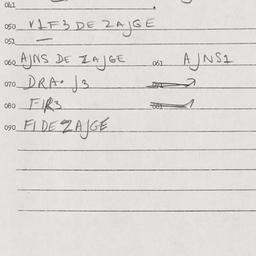 041
050 V1F3 DE ZAJGE
051
060 AJNS DE ZAJGE 061 AJNS1
070 DRA. J3
080 FIR3
090 FIDEZAJGE